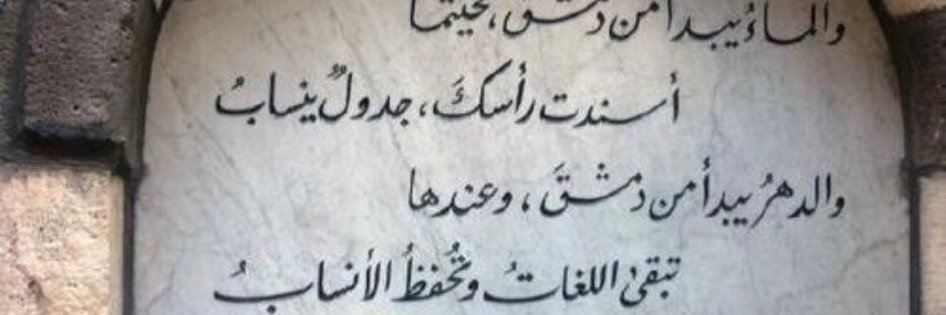 والماءُ يبدأ من دمشق، فحيثما
أسندت رأسكَ، جدولٌ ينسابُ
والدهرُ يبدأ من دمشقَ، وعندها
تبقى اللغاتُ وتُحفظُ الأنسابُ